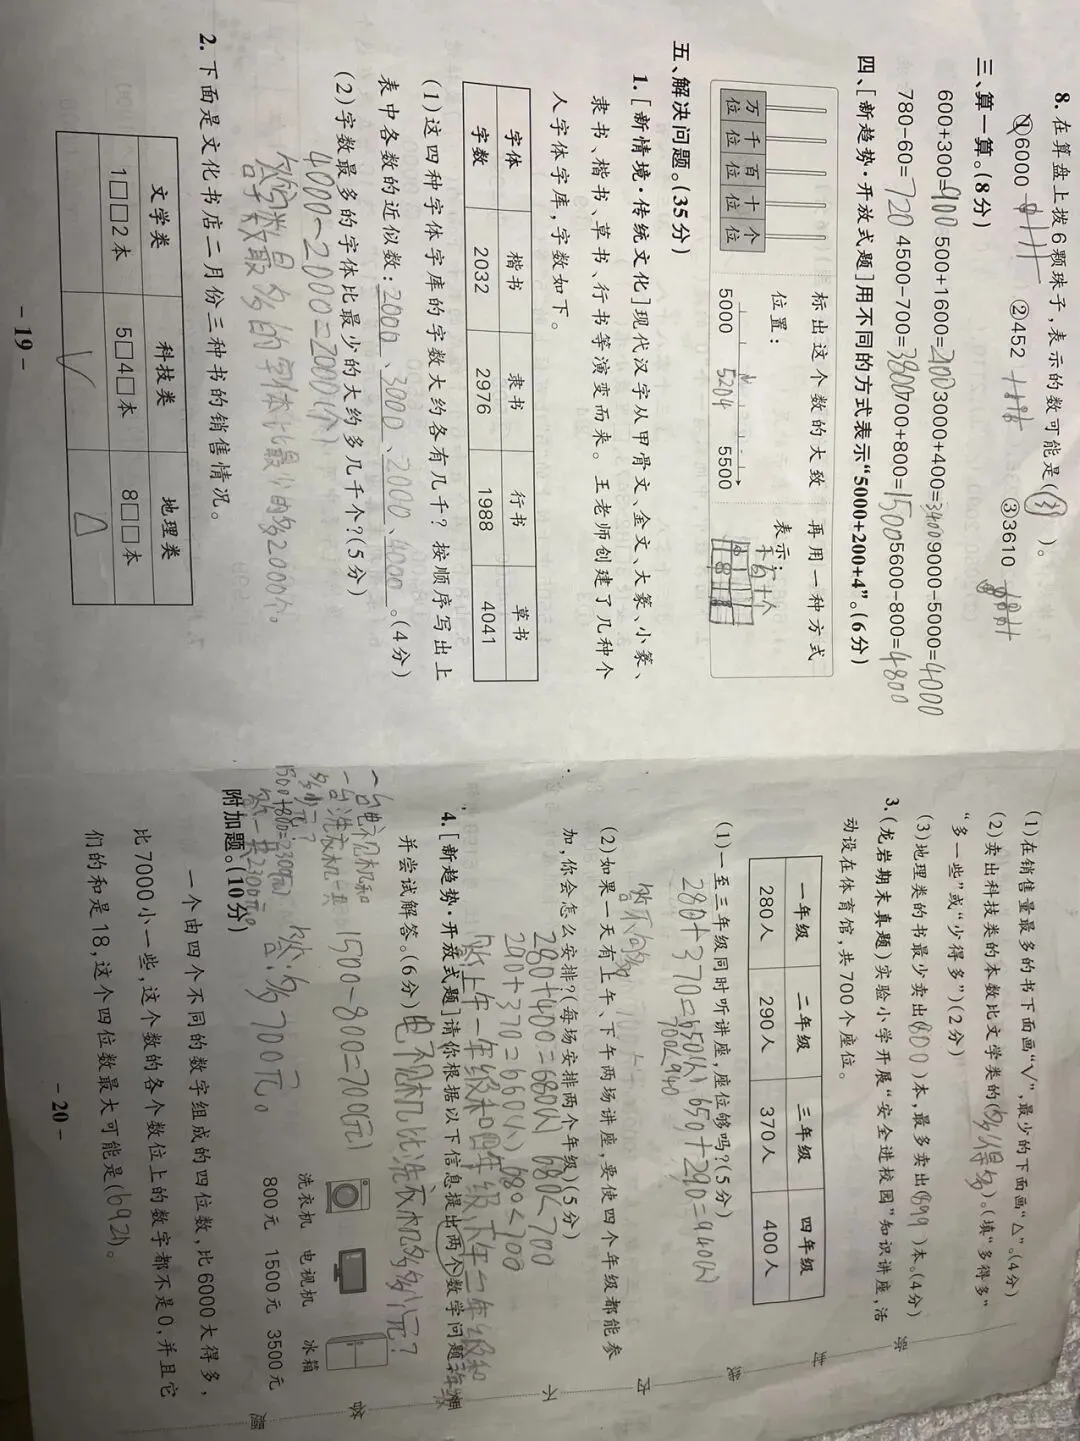 8.在算盘上拨6颗珠子,表示的数可能是(③)。
①6000 ②4452 ③3610
三、算一算。(8分)
600+300=900 500+1600=2100 3000+400=3400 9000-5000=4000
780-60=720 4500-700=3800 700+800=1500 5600-800=4800
四、[新趋势·开放式题]用不同的方式表示“5000+200+4”。(6分)
万位 千位 百位 十位 个位
标出这个数的大致位置:
5000 5204 5500
再用一种方式表示:
五、解决问题。(35分)
1.[新情境·传统文化]现代汉字从甲骨文、金文、大篆、小篆、
隶书、楷书、草书、行书等演变而来。王老师创建了几种个
人字体字库,字数如下。
字体 楷书 隶书 行书 草书
字数 2032 2976 1988 4041
(1)这四种字体字库的字数大约各有几千?按顺序写出上
表中各数的近似数:2000、3000、2000、4000。(4分)
(2)字数最多的字体比最少的大约多几千个?(5分)
4000-2000=2000(个)
答:字数最多的字体比最少的多2000个。
2.下面是文化书店二月份三种书的销售情况。
文学类 科技类 地理类
1□□2本 5□4□本 8□□本
√ △
-19-
(1)在销售量最多的书下面画“√”,最少的下面画“△”。(4分)
(2)卖出科技类的本数比文学类的(多得多)。(填“多得多”
“多一些”或“少得多”)(2分)
(3)地理类的书最少卖出(800)本,最多卖出(899)本。(4分)
3.(龙岩期末真题)实验小学开展“安全进校园”知识讲座,活
动设在体育馆,共700个座位。
一年级 二年级 三年级 四年级
280人 290人 370人 400人
(1)一至三年级同时听讲座,座位够吗?(5分)
280+370=650(人) 650+290=940(人)
700<940
答:不够
(2)如果一天有上午、下午两场讲座,要使四个年级都能参
加,你会怎么安排?(每场安排两个年级)(5分)
280+400=680(人) 680<700
290+370=660(人) 680<700
答:上午一年级和四年级 下午二年级和
4.[新趋势·开放式题]请你根据以下信息提出两个数学问题,
并尝试解答。(6分)
电视机比洗衣机多多少元?
1500-800=700(元)
答:多700元。
一台电视机和
一台洗衣机一共
多少元?
1500+800=2300(元)
答:一共2300元。
洗衣机 电视机 冰箱
800元 1500元 3500元
附加题。(10分)
一个由四个不同的数字组成的四位数,比6000大得多,
比7000小一些,这个数的各个数位上的数字都不是0,并且它
们的和是18,这个四位数最大可能是(6921)。
-20-